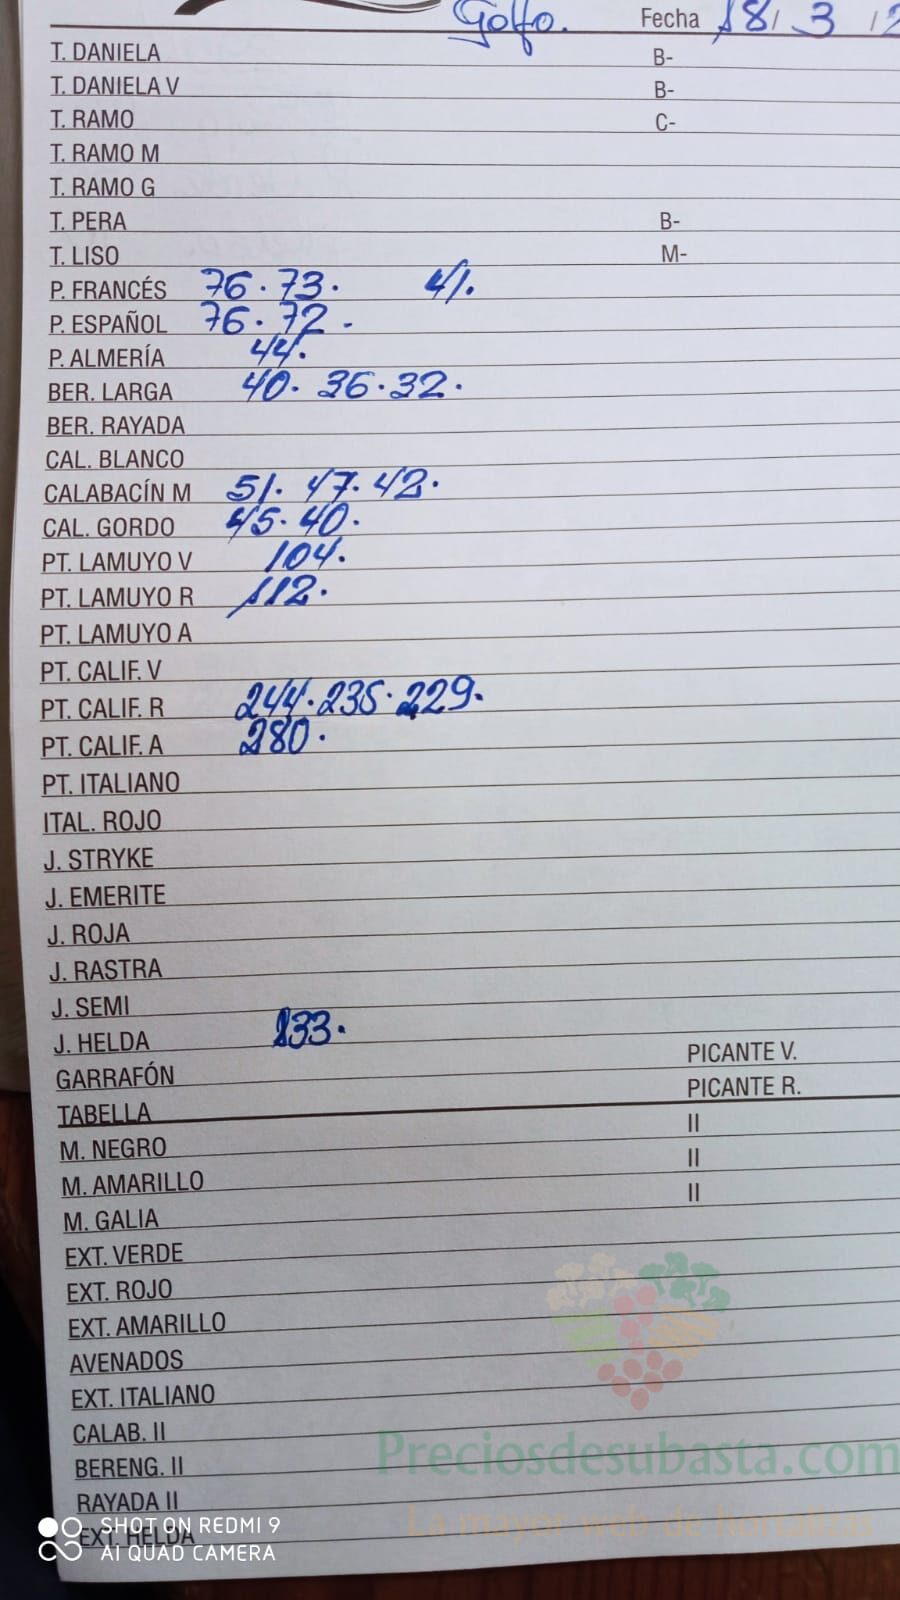 Golfo. Fecha 18/ 3 /2
T. DANIELA B-
T. DANIELA V B-
T. RAMO C-
T. RAMO M
T. RAMO G
T. PERA B-
T. LISO M-
P. FRANCÉS 76. 73. 41.
P. ESPAÑOL 76. 72.
P. ALMERÍA 44.
BER. LARGA 40. 36. 32.
BER. RAYADA
CAL. BLANCO
CALABACÍN M 51. 47. 42.
CAL. GORDO 45. 40.
PT. LAMUYO V 104.
PT. LAMUYO R 112.
PT. LAMUYO A
PT. CALIF. V
PT. CALIF. R 244. 235. 229.
PT. CALIF. A 280.
PT. ITALIANO
ITAL. ROJO
J. STRYKE
J. EMERITE
J. ROJA
J. RASTRA
J. SEMI
J. HELDA 133.
GARRAFÓN PICANTE V.
TABELLA PICANTE R.
M. NEGRO II
M. AMARILLO II
M. GALIA II
EXT. VERDE
EXT. ROJO
EXT. AMARILLO
AVENADOS
EXT. ITALIANO
CALAB. II
BERENG. II
RAYADA II
EXT. HELDA
Preciosdesubasta.com
La mayor web de hortalizas
SHOT ON REDMI 9
AI QUAD CAMERA